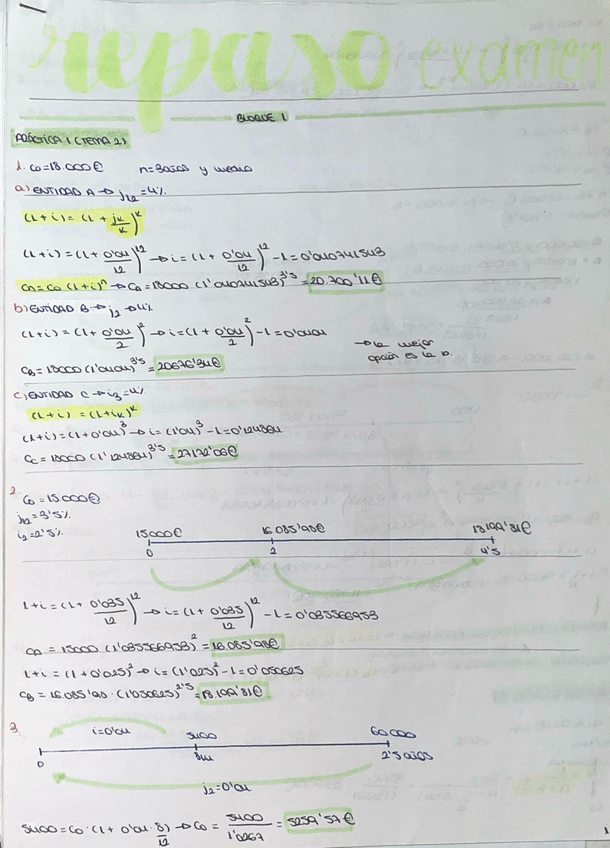 repaso examen
BLOQUE 1
PRÁCTICA 1 (TEMA 2)
1. C0=18.000€ n=3años y medio
a) ENTIDAD A → j12=4%
(1+i)=(1+jk/k)^k
(1+i)=(1+0'04/12)^12 → i=(1+0'04/12)^12 -1=0'040741543
Cn=C0(1+i)^n → Cn=18000(1'040741543)^3'5=20.700'11€
b) ENTIDAD B → j2 → 4%
(1+i)=(1+0'04/2)^2 → i=(1+0'04/2)^2 -1=0'0404
→ la mejor
opción es la b.
CB=18000(1'0404)^3'5=20676'34€
c) ENTIDAD C → i3=4%
(1+i)=(1+ik)^k
(1+i)=(1+0'04)^3 → i=(1'04)^3 -1=0'124864
CC=18000(1'124864)^3'5=27172'06€
2. C0=15000€
j12=3'5%
i2=2'5%
15000€ 16.085'98€ 18.199'81€
0 2 4'5
1+i=(1+0'035/12)^12 → i=(1+0'035/12)^12 -1=0'035566953
CA=15000(1'035566953)^2=16.085'98€
1+i=(1+0'025)^2 → i=(1'025)^2 -1=0'050625
CB=16.085'98·(1'050625)^2'5=18.199'81€
3. i=0'04 5400 60000
0 8m 2'5 años
j2=0'04
5400=C0·(1+0'04·8/12) → C0=5400/1'0267=5259'57€
1